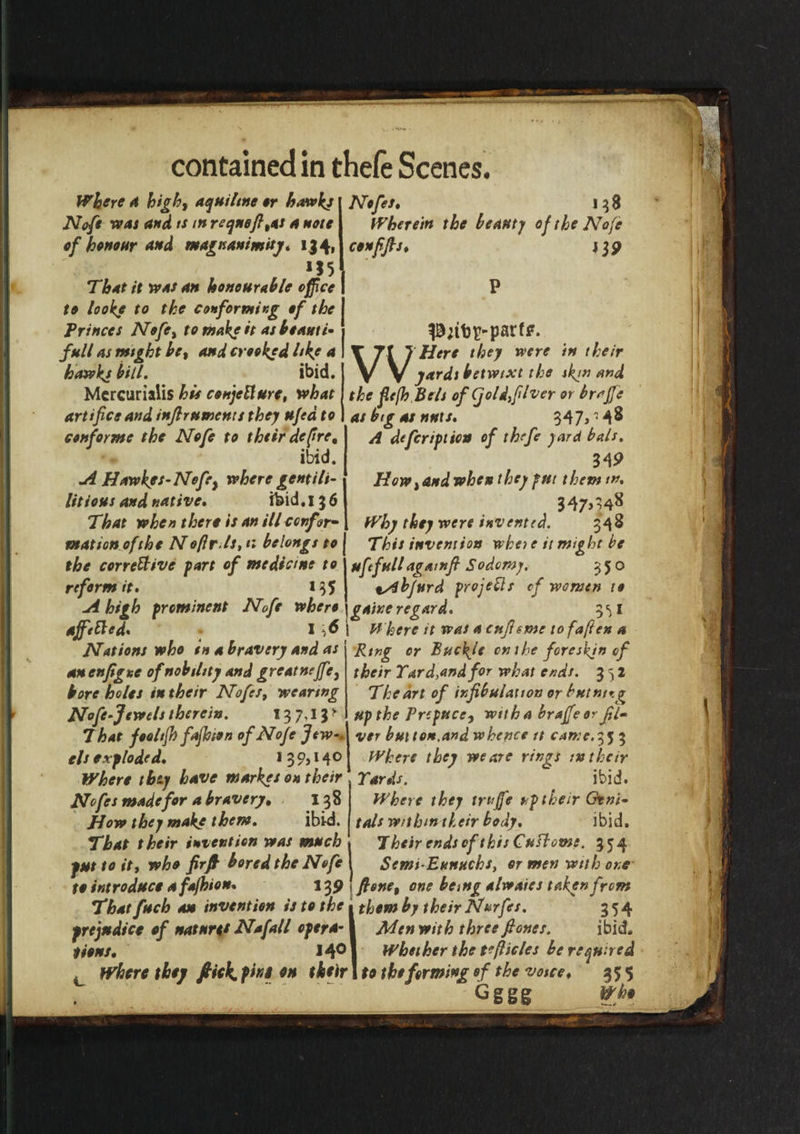 contained in theſe Scenes.
Where a high, aquiline or hawks
Noſe was and is in requeſt, as a note
of honour and magnanimity. 134,
135
That it was an honourable office
to looke to the conforming of the
Princes Noſe, to make it as beauti-
full as might be, and crooked like a
hawks bill. ibid.
Mercurialis his conjecture, what
artifice and inſtruments they uſed to
conforme the Noſe to their deſire.
ibid.
A Hawkes-Noſe, where gentili-
litious and native. ibid. 136
That when there is an ill confor-
mation of the Noſtrils, it belongs to
the corrective part of medicine to
reform it. 135
A high prominent Noſe where
affected. 136
Nations who in a bravery and as
an enſigne of nobility and greatneſſe,
bore holes in their Noſes, wearing
Noſe-Jewels therein. 137,13
That fooliſh faſhion of Noſe Jew-
els exploded. 139,140
Where they have markes on their
Noſes made for a bravery. 138
How they make them. ibid.
That their invention was much
put to it, who firſt bored the Noſe
to introduce a faſhion. 139
That ſuch an invention is to the
prejudice of natures Naſall opera-
tions. 140
Where they ſtick pins on their
Noſes. 138
Wherein the beauty of the Noſe
conſiſts. 139
P
Privy-parts.
WHere they were in their
yards betwixt the skin and
the fleſh Bels of Gold, ſilver or braſſe
as big as nuts. 347, 348
A deſcription of theſe yard bals.
349
How, and when they put them in.
347,348
Why they were invented. 348
This invention where it might be
uſefull againſt Sodomy. 350
Abſurd projects of women to
gaine regard. 351
Where it was a cuſtome to faſten a
Ring or Buckle on the foreskin of
their Yard, and for what ends. 352
The art of infibulation or butning
up the Prepuce, with a braſſe or ſil-
ver button, and whence it came. 353
Where they weare rings in their
Yards. ibid.
Where they truſſe up their Geni-
tals within their body. ibid.
Their ends of this Cuſtome. 354
Semi-Eunuchs, or men with one
ſtone, one being alwaies taken from
them by their Nurſes. 354
Men with three ſtones. ibid.
Whether the teſticles be required
to the forming of the voice. 355
Gggg Who